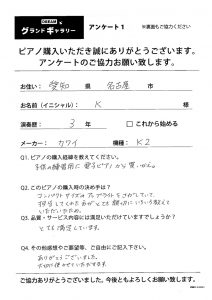 DREAM&
グランドギャラリー
アンケート1
※裏面もご協力ください
ピアノ購入いただき誠にありがとうございます。
アンケートのご協力お願い致します。
お住い: 愛知 県 名古屋 市
お名前(イニシャル): K 様
演奏歴: 3 年 □これから始める
メーカー: カワイ 機種: K2
Q1. ピアノの購入経緯を教えてください。
子供の練習用に電子ピアノから買いかえ。
Q2. このピアノの購入時の決め手は?
コンパクトサイズでアップライトをさがしていて、
担当してくれた方がとても親切にいろいろ教えて
いただいたため。
Q3. 品質・サービス内容には満足いただけていますでしょうか?
とても満足しています。
Q4. その他感想やご要望等、ご自由にご記入下さい。
ありがとうございました。
大切に使わせていただきます。
ご協力ありがとうございました。今後ともよろしくお願い致します。